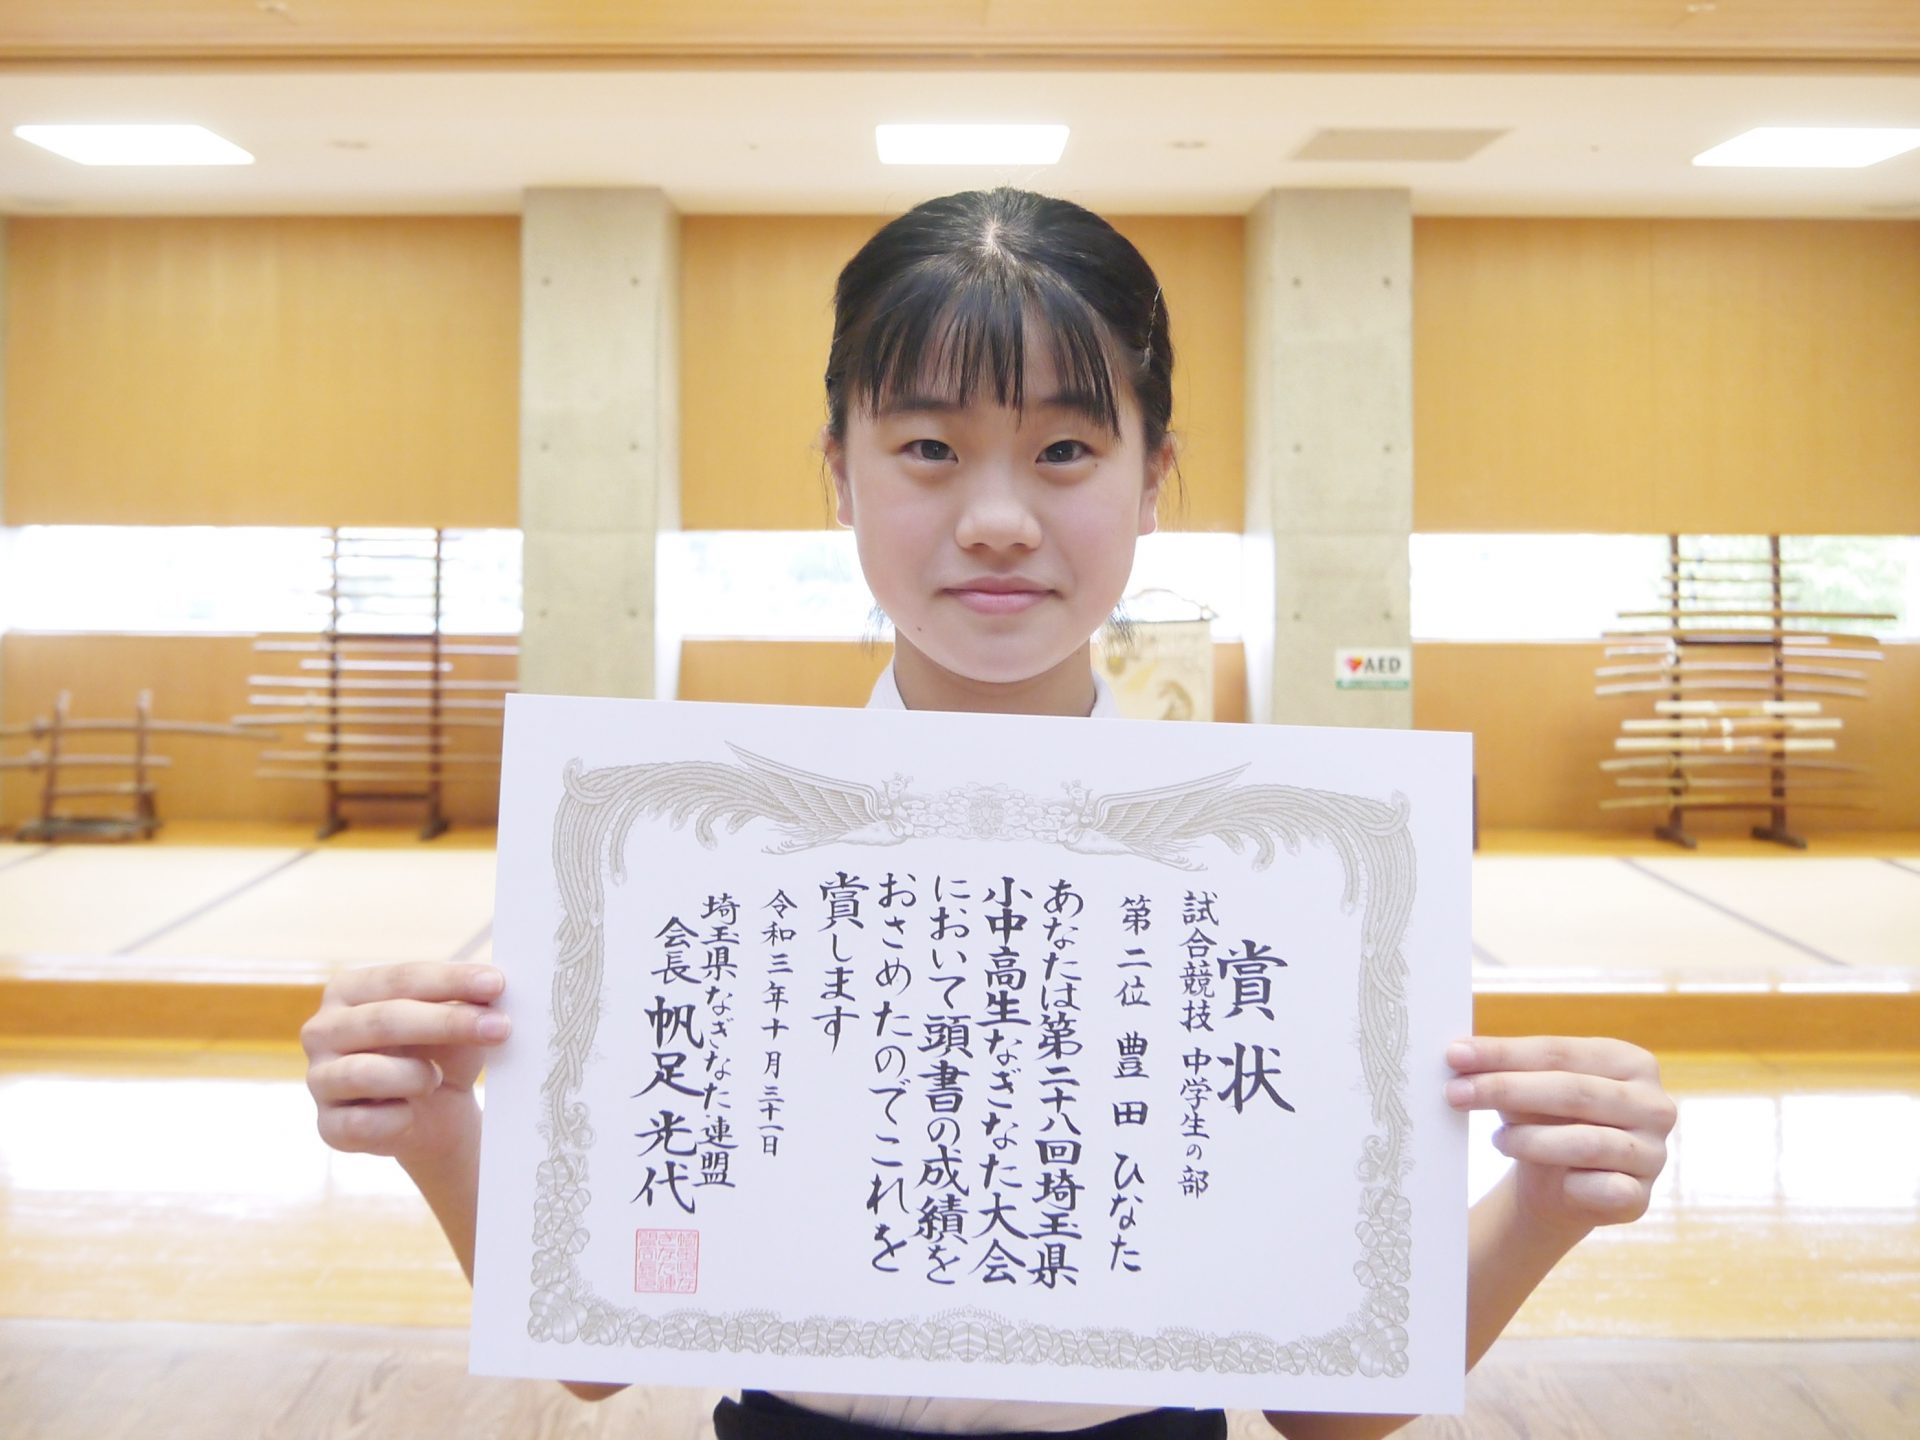 賞状
試合競技 中学生の部
第二位 豊田 ひなた
あなたは第二十八回埼玉県
小中高生なぎなた大会
において頭書の成績を
おさめたのでこれを
賞します
令和三年十月三十一日
埼玉県なぎなた連盟
会長 帆足光代
AED